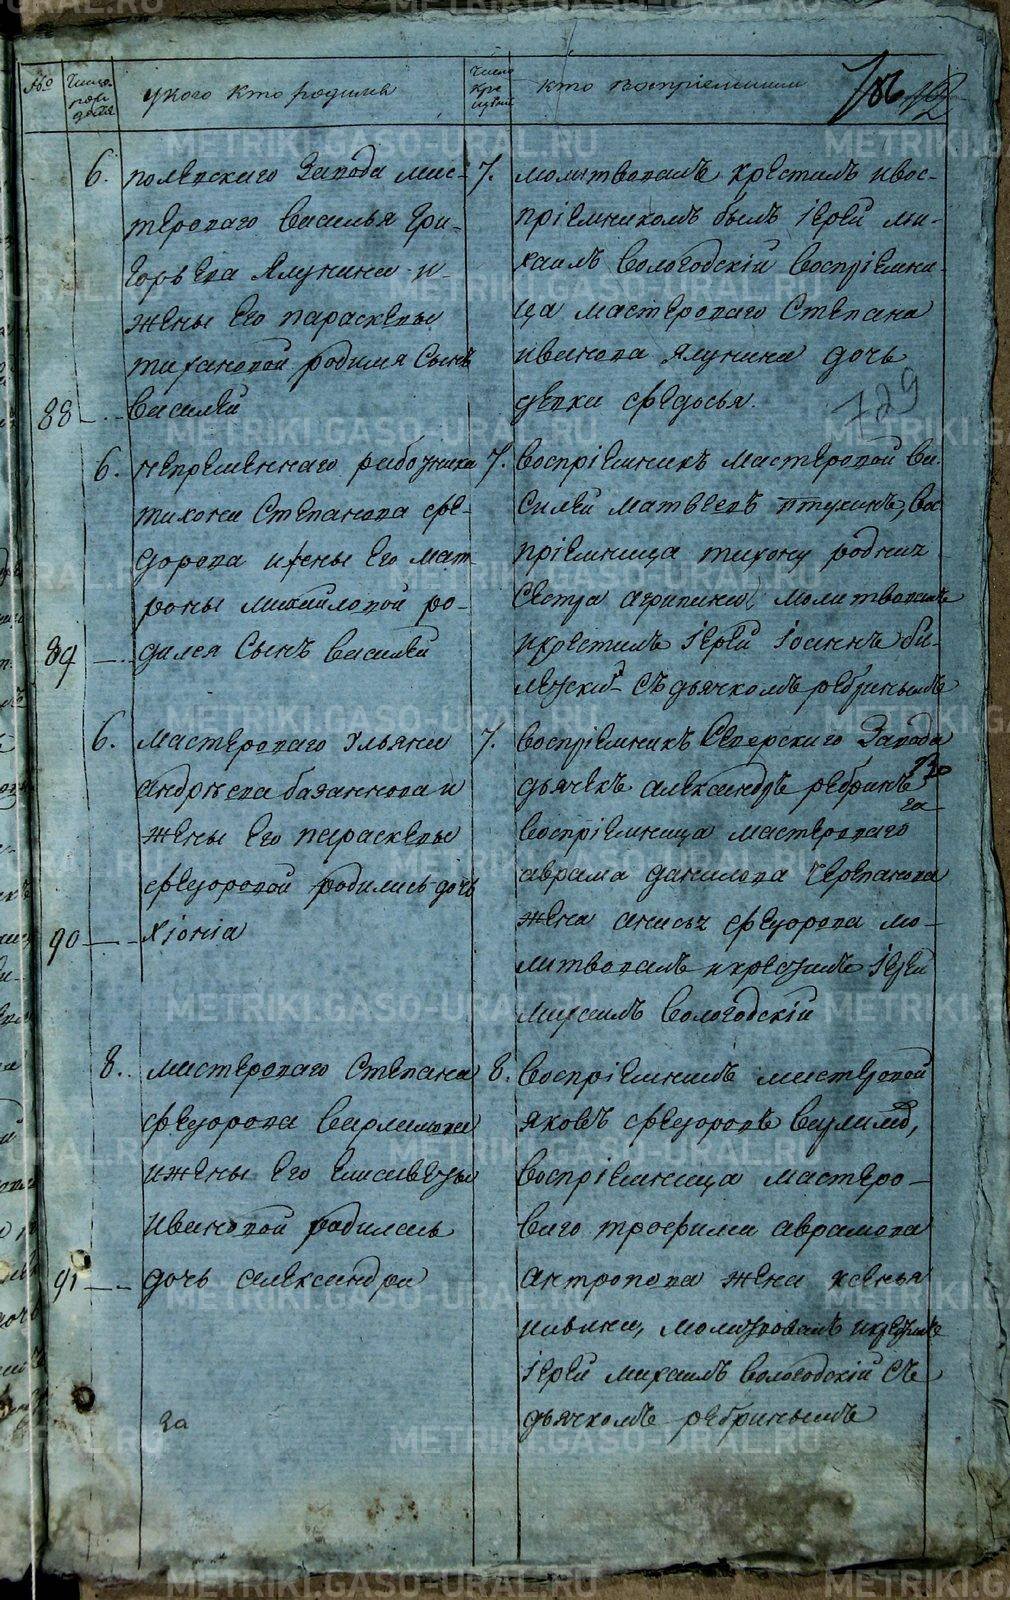 № Число рождества у кого кто родился Число крещения кто восприемники
706 12
6. полевскаго Завода мас-
тероваго василья гри-
горьева Ялунина и
жены Его параскевы
тихановой родился Сынъ
88 василей
7. молитвовалъ крестилъ ивос-
приемникомъ былъ iерей ми-
хаилъ вологодскiй воспрiемни-
ца мастероваго Степана
иванова Ялунина дочь
девка ѳедосья.
729
6. непременнаго работника
тихона Степанова ѳе-
дорова ижены Его мат-
роны михайловой ро-
89 дился Сынъ василей
7. воспрiемникъ мастеровой ва-
силей матвеевъ птухинъ, вос
прiемница тихону родная
Сестра агрипина, молитвовалъ
икрестилъ iерей iоаннъ би-
лецкий Съ дьячкомъ ребринымъ
6. мастероваго Ульяна
андреева базаннова и
жены Его параскевы
ѳедоровой родилась дочь
90 Хiонiа
7. воспрiемникъ Северскаго Завода
дьячекъ александръ ребринъ
730
воспрiемница мастероваго
аврама данилова черепанова
жена анисья ѳедорова мо-
литвовалъ икрестилъ iерей
михаилъ вологодскiй
8. мастероваго Степана
ѳедорова варламова
ижены Его Елисаветы
ивановой родилась
91 дочь александра
8. воспрiемникъ мастеровой
яковъ ѳедоровъ
воспрiемница мастеро-
ваго трофима аврамова
антропова жена ксенья
молитвовалъ икрестилъ
iерей михаилъ вологодскiй Съ
дьячкомъ ребринымъ
За
METRIKI.GASO-URAL.RU